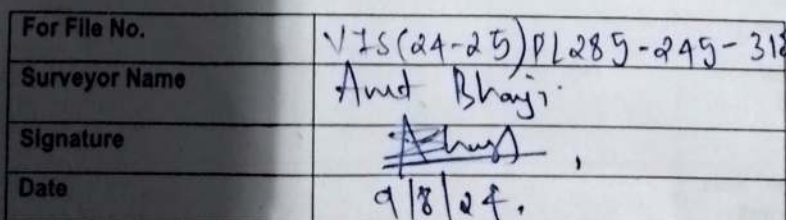 For File No. VIS(24-25)PL285-245-318
Surveyor Name Amit Bhaiji
Signature
Date 9/8/24.